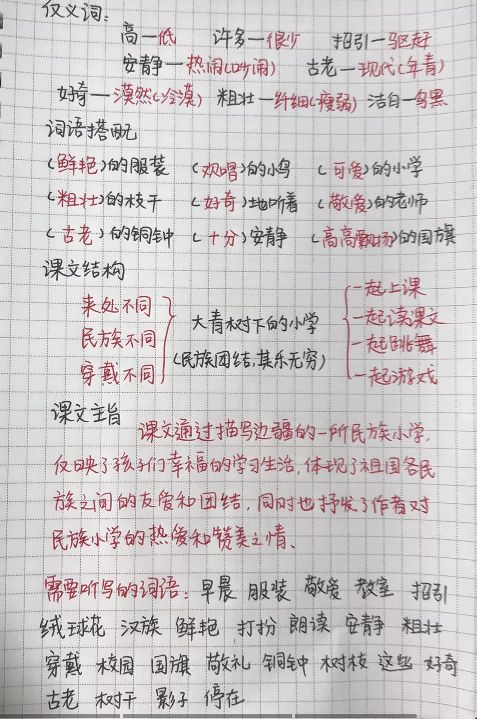 反义词:
高—低 许多—很少 招引—驱赶
安静—热闹(吵闹) 古老—现代(年青)
好奇—漠然(冷漠) 粗壮—纤细(瘦弱) 洁白—乌黑
词语搭配
(鲜艳)的服装 (欢唱)的小鸟 (可爱)的小学
(粗壮)的枝干 (好奇)地听着 (敬爱)的老师
(古老)的铜钟 (十分)安静 (高高飘扬)的国旗
课文结构
来处不同
民族不同
穿戴不同
大青树下的小学
(民族团结,其乐无穷)
一起上课
一起读课文
一起跳舞
一起游戏
课文主旨
课文通过描写边疆的一所民族小学,
反映了孩子们幸福的学习生活,体现了祖国各民
族之间的友爱和团结,同时也抒发了作者对
民族小学的热爱和赞美之情、
需要听写的词语:早晨 服装 敬爱 教室 招引
绒球花 汉族 鲜艳 打扮 朗读 安静 粗壮
穿戴 校园 国旗 敬礼 铜钟 树枝 这些 好奇
古老 树干 影子 停在